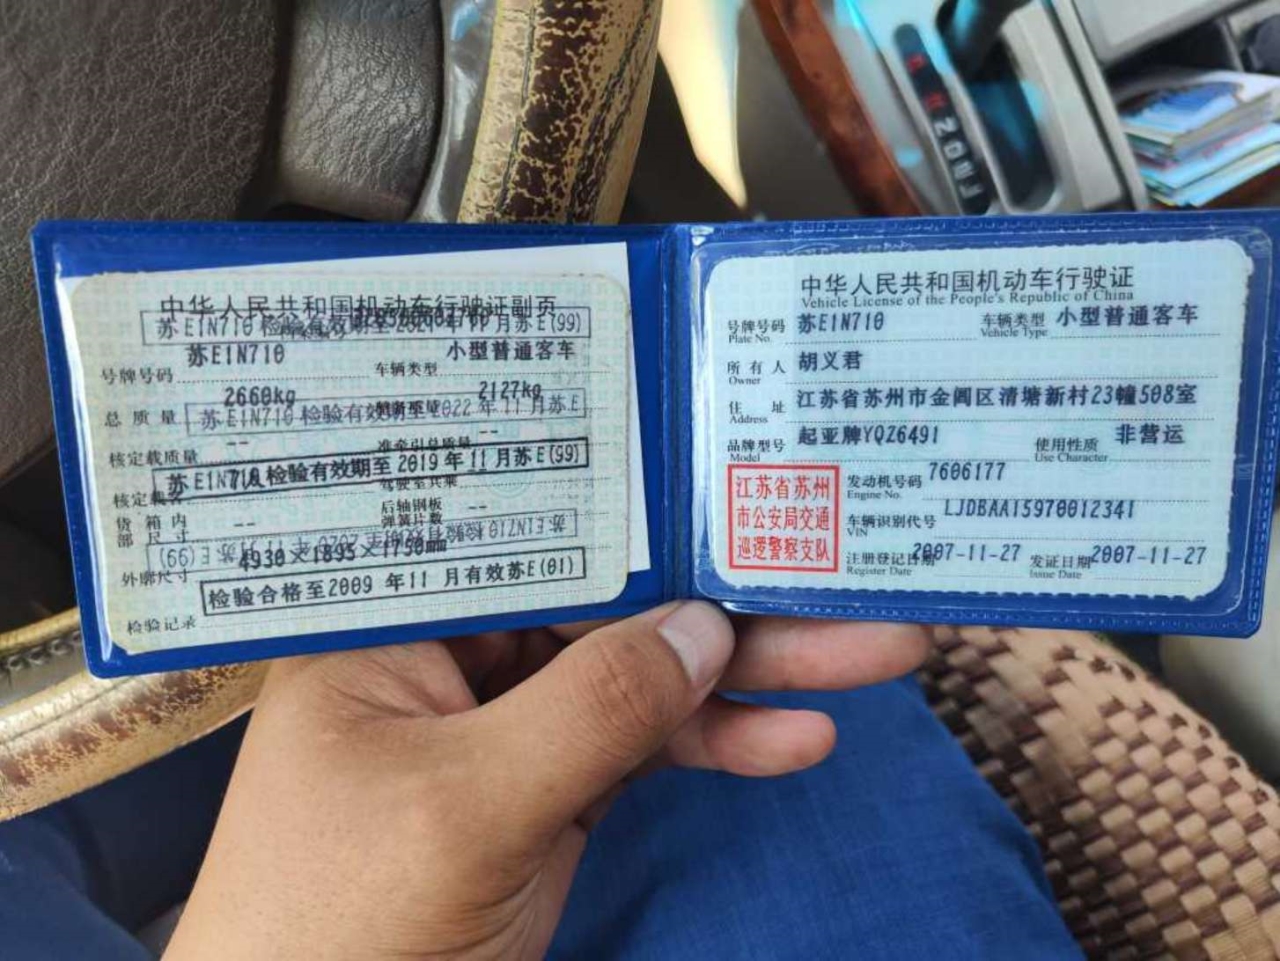 中华人民共和国机动车行驶证副页
苏E1N710 检验有效期至2021年11月苏E(99)
号牌号码 苏E1N710 车辆类型 小型普通客车
总质量 2660kg 2127kg
苏E1N710 检验有效期至2022年11月苏E
核定载质量 -- 准牵引总质量 --
苏E1N710 检验有效期至2019年11月苏E(99)
核定载客 驾驶室共乘
货箱内部尺寸 -- 后轴钢板弹簧片数 --
外廓尺寸 4930×1895×1750mm
检验合格至2009年11月有效苏E(01)
检验记录
中华人民共和国机动车行驶证
Vehicle License of the People's Republic of China
号牌号码 苏E1N710 车辆类型 小型普通客车
Plate No. Vehicle Type
所有人 胡义君
Owner
住址 江苏省苏州市金阊区清塘新村23幢508室
Address
品牌型号 起亚牌YQZ6491 使用性质 非营运
Model Use Character
江苏省苏州
市公安局交通
巡逻警察支队
发动机号码 7606177
Engine No.
车辆识别代号 LJDBAA15970012341
VIN
注册登记日期 2007-11-27 发证日期 2007-11-27
Register Date Issue Date